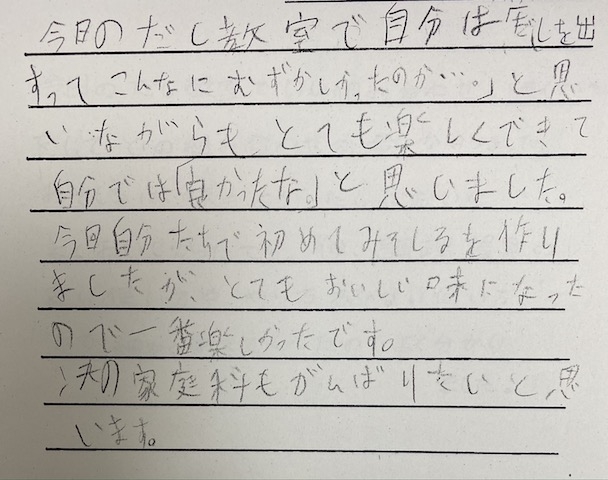 今日のだし教室で自分は「だしを出
すってこんなにむずかしかったのか…。」と思
いながらも、とても楽しくできて
自分では「良かったな。」と思いました。
今回自分たちで初めてみそしるを作り
ましたが、とてもおいしい味になった
ので一番楽しかったです。
次の家庭科もがんばりたいと思
います。